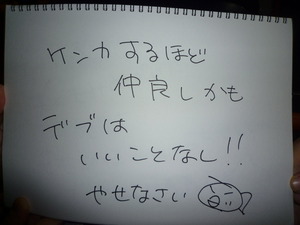 ケンカするほど
仲良しかも
デブは
いいことなし!!
やせなさい